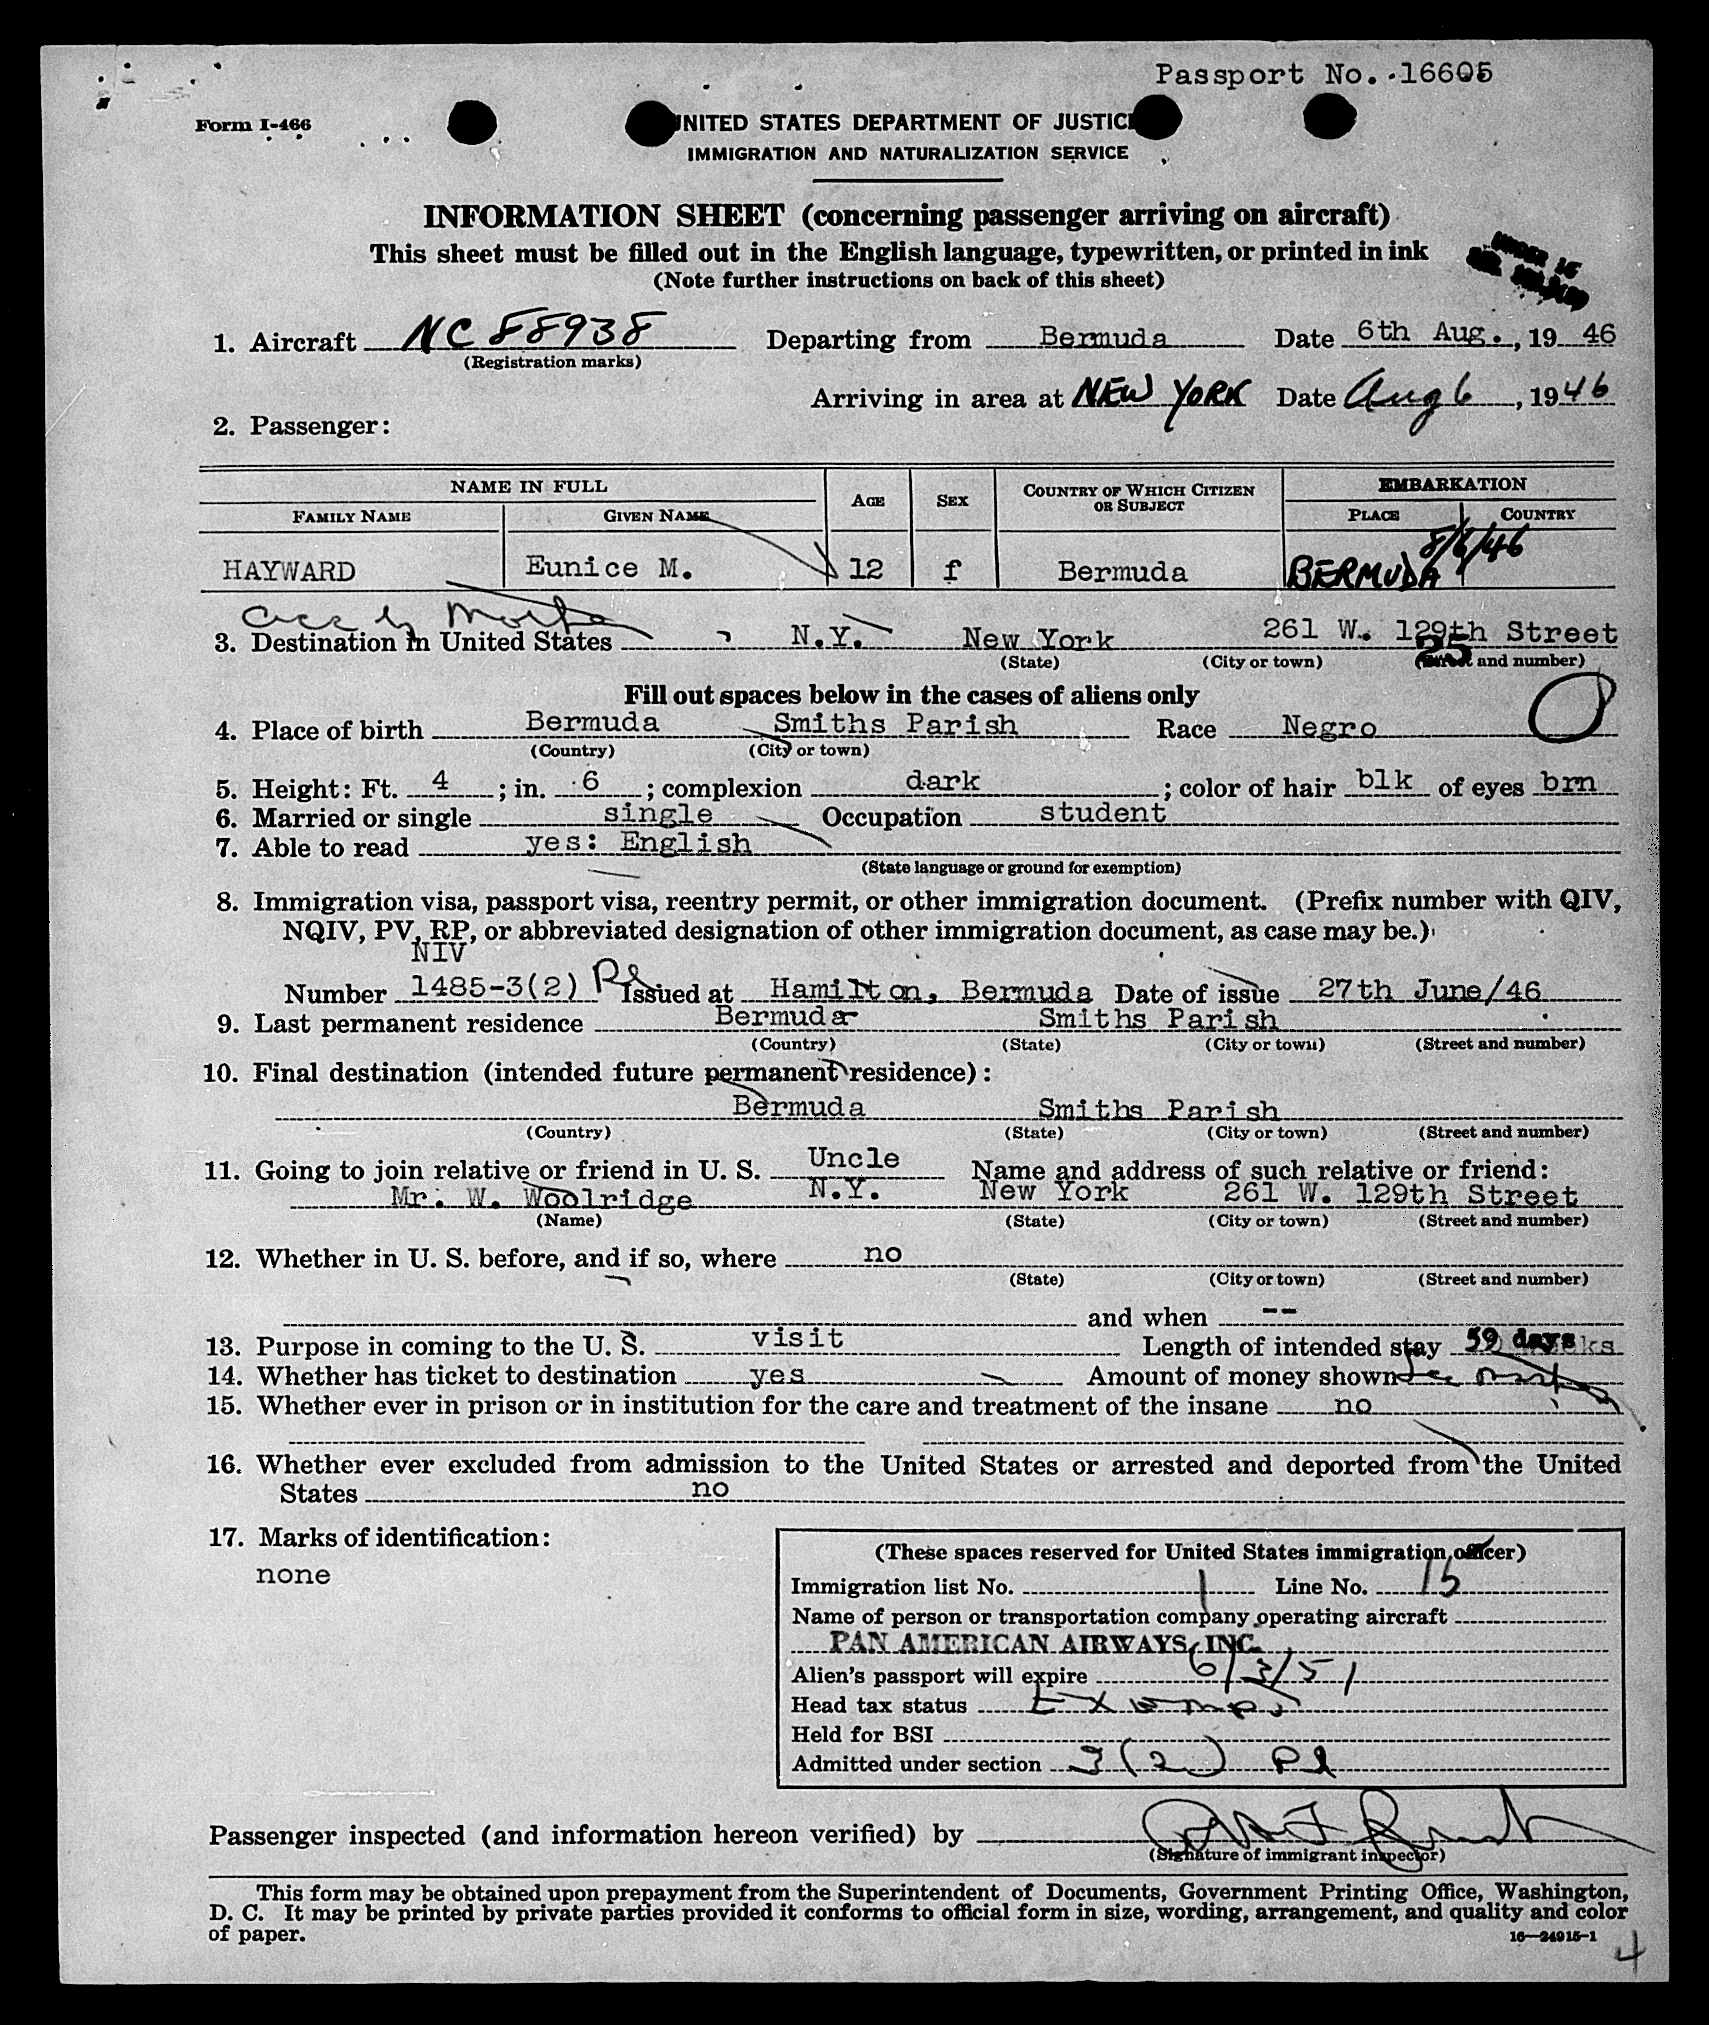 Passport No. 16605
Form I-466
UNITED STATES DEPARTMENT OF JUSTICE
IMMIGRATION AND NATURALIZATION SERVICE
INFORMATION SHEET (concerning passenger arriving on aircraft)
This sheet must be filled out in the English language, typewritten, or printed in ink
(Note further instructions on back of this sheet)
UNDER 16
1. Aircraft NC 88938 Departing from Bermuda Date 6th Aug., 19 46
(Registration marks)
Arriving in area at NEW YORK Date Aug 6, 1946
2. Passenger:
NAME IN FULL AGE SEX COUNTRY OF WHICH CITIZEN OR SUBJECT EMBARKATION
FAMILY NAME GIVEN NAME PLACE COUNTRY
8/6/46
HAYWARD Eunice M. 12 f Bermuda BERMUDA
Acc by Mother
3. Destination in United States , N.Y. New York 261 W. 129th Street
25
(State) (City or town) (Street and number)
Fill out spaces below in the cases of aliens only
4. Place of birth Bermuda Smiths Parish Race Negro
(Country) (City or town)
5. Height: Ft. 4; in. 6; complexion dark; color of hair blk of eyes brn
6. Married or single single Occupation student
7. Able to read yes: English
(State language or ground for exemption)
8. Immigration visa, passport visa, reentry permit, or other immigration document. (Prefix number with QIV,
NQIV, PV, RP, or abbreviated designation of other immigration document, as case may be.)
NIV
Number 1485-3(2) Pl Issued at Hamilton, Bermuda Date of issue 27th June/46
9. Last permanent residence Bermuda Smiths Parish
(Country) (State) (City or town) (Street and number)
10. Final destination (intended future permanent residence):
Bermuda Smiths Parish
(Country) (State) (City or town) (Street and number)
11. Going to join relative or friend in U. S. Uncle Name and address of such relative or friend:
Mr. W. Woolridge N.Y. New York 261 W. 129th Street
(Name) (State) (City or town) (Street and number)
12. Whether in U. S. before, and if so, where no
(State) (City or town) (Street and number)
and when --
13. Purpose in coming to the U. S. visit Length of intended stay 59 days
14. Whether has ticket to destination yes Amount of money shown See Mother
15. Whether ever in prison or in institution for the care and treatment of the insane no
16. Whether ever excluded from admission to the United States or arrested and deported from the United
States no
17. Marks of identification:
none
(These spaces reserved for United States immigration officer)
Immigration list No. 1 Line No. 15
Name of person or transportation company operating aircraft
PAN AMERICAN AIRWAYS, INC.
Alien's passport will expire 6/3/51
Head tax status Exempt
Held for BSI
Admitted under section 3(2) Pl
Passenger inspected (and information hereon verified) by
(Signature of immigrant inspector)
This form may be obtained upon prepayment from the Superintendent of Documents, Government Printing Office, Washington,
D. C. It may be printed by private parties provided it conforms to official form in size, wording, arrangement, and quality and color
of paper.
16—24915-1
4